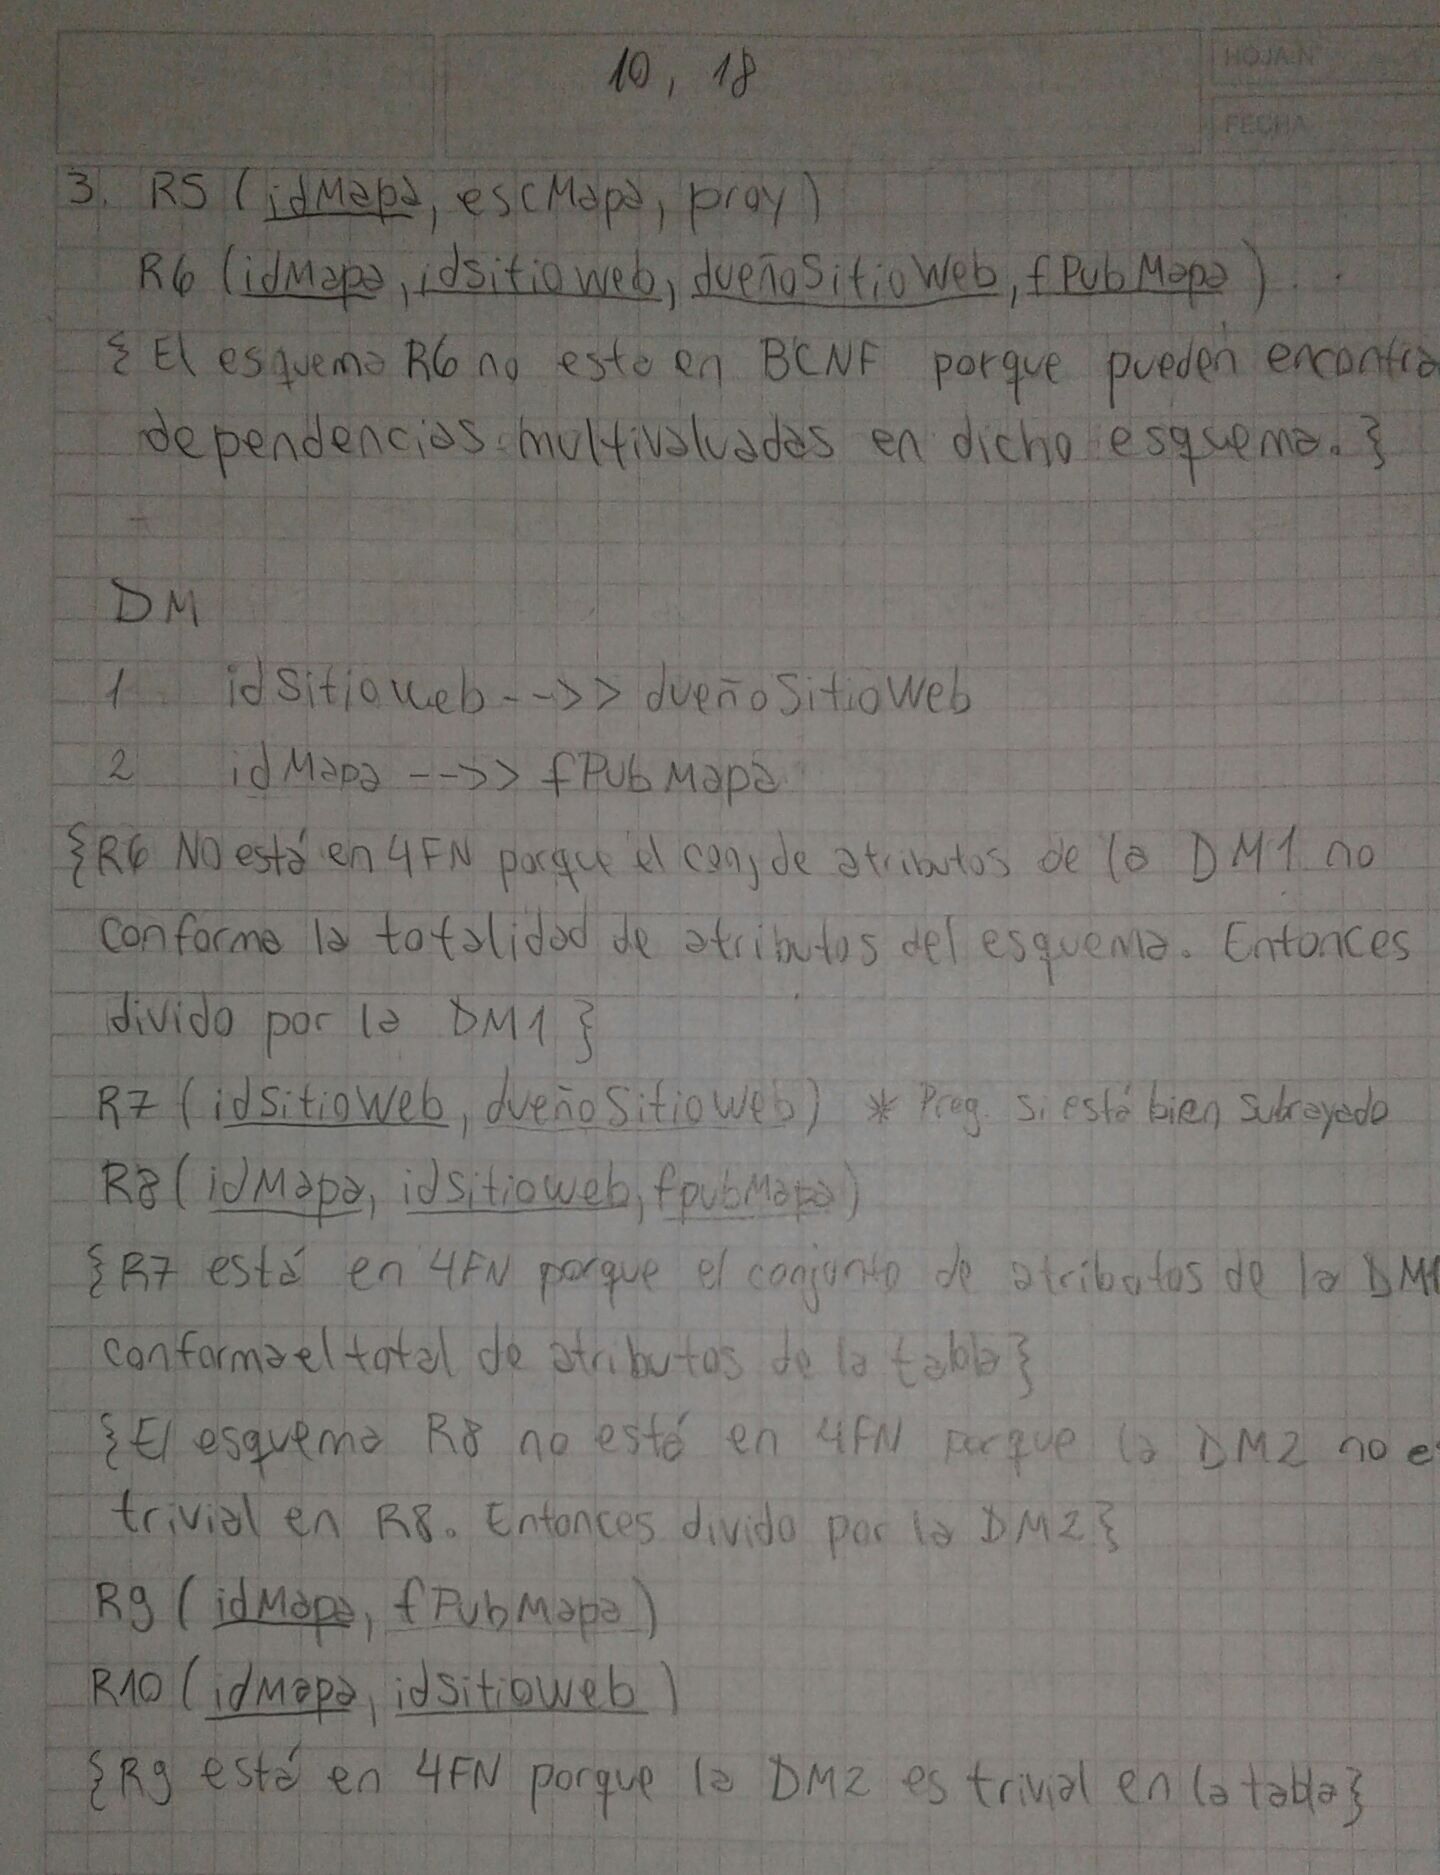 10, 18
HOJA N
FECHA
3. R5 (idMapa, escMapa, proy)
R6 (idMapa, idsitioweb, dueñoSitioWeb, fPubMapa)
{El esquema R6 no esta en BCNF porque pueden encontra
dependencias multivaluadas en dicho esquema.}
DM
1 idSitioweb -->> dueñoSitioWeb
2 idMapa -->> fPubMapa
{R6 NO está en 4FN porque el conj de atributos de la DM1 no
conforma la totalidad de atributos del esquema. Entonces
divido por la DM1}
R7 (idSitioWeb, dueñoSitioWeb) * Preg. si está bien subrayado
R8 (idMapa, idSitioweb, fpubMapa)
{R7 está en 4FN porque el conjunto de atributos de la DM1
conforma el total de atributos de la tabla}
{El esquema R8 no está en 4FN porque la DM2 no e
trivial en R8. Entonces divido por la DM2}
R9 (idMapa, fPubMapa)
R10 (idMapa, idSitioweb)
{R9 está en 4FN porque la DM2 es trivial en la tabla}